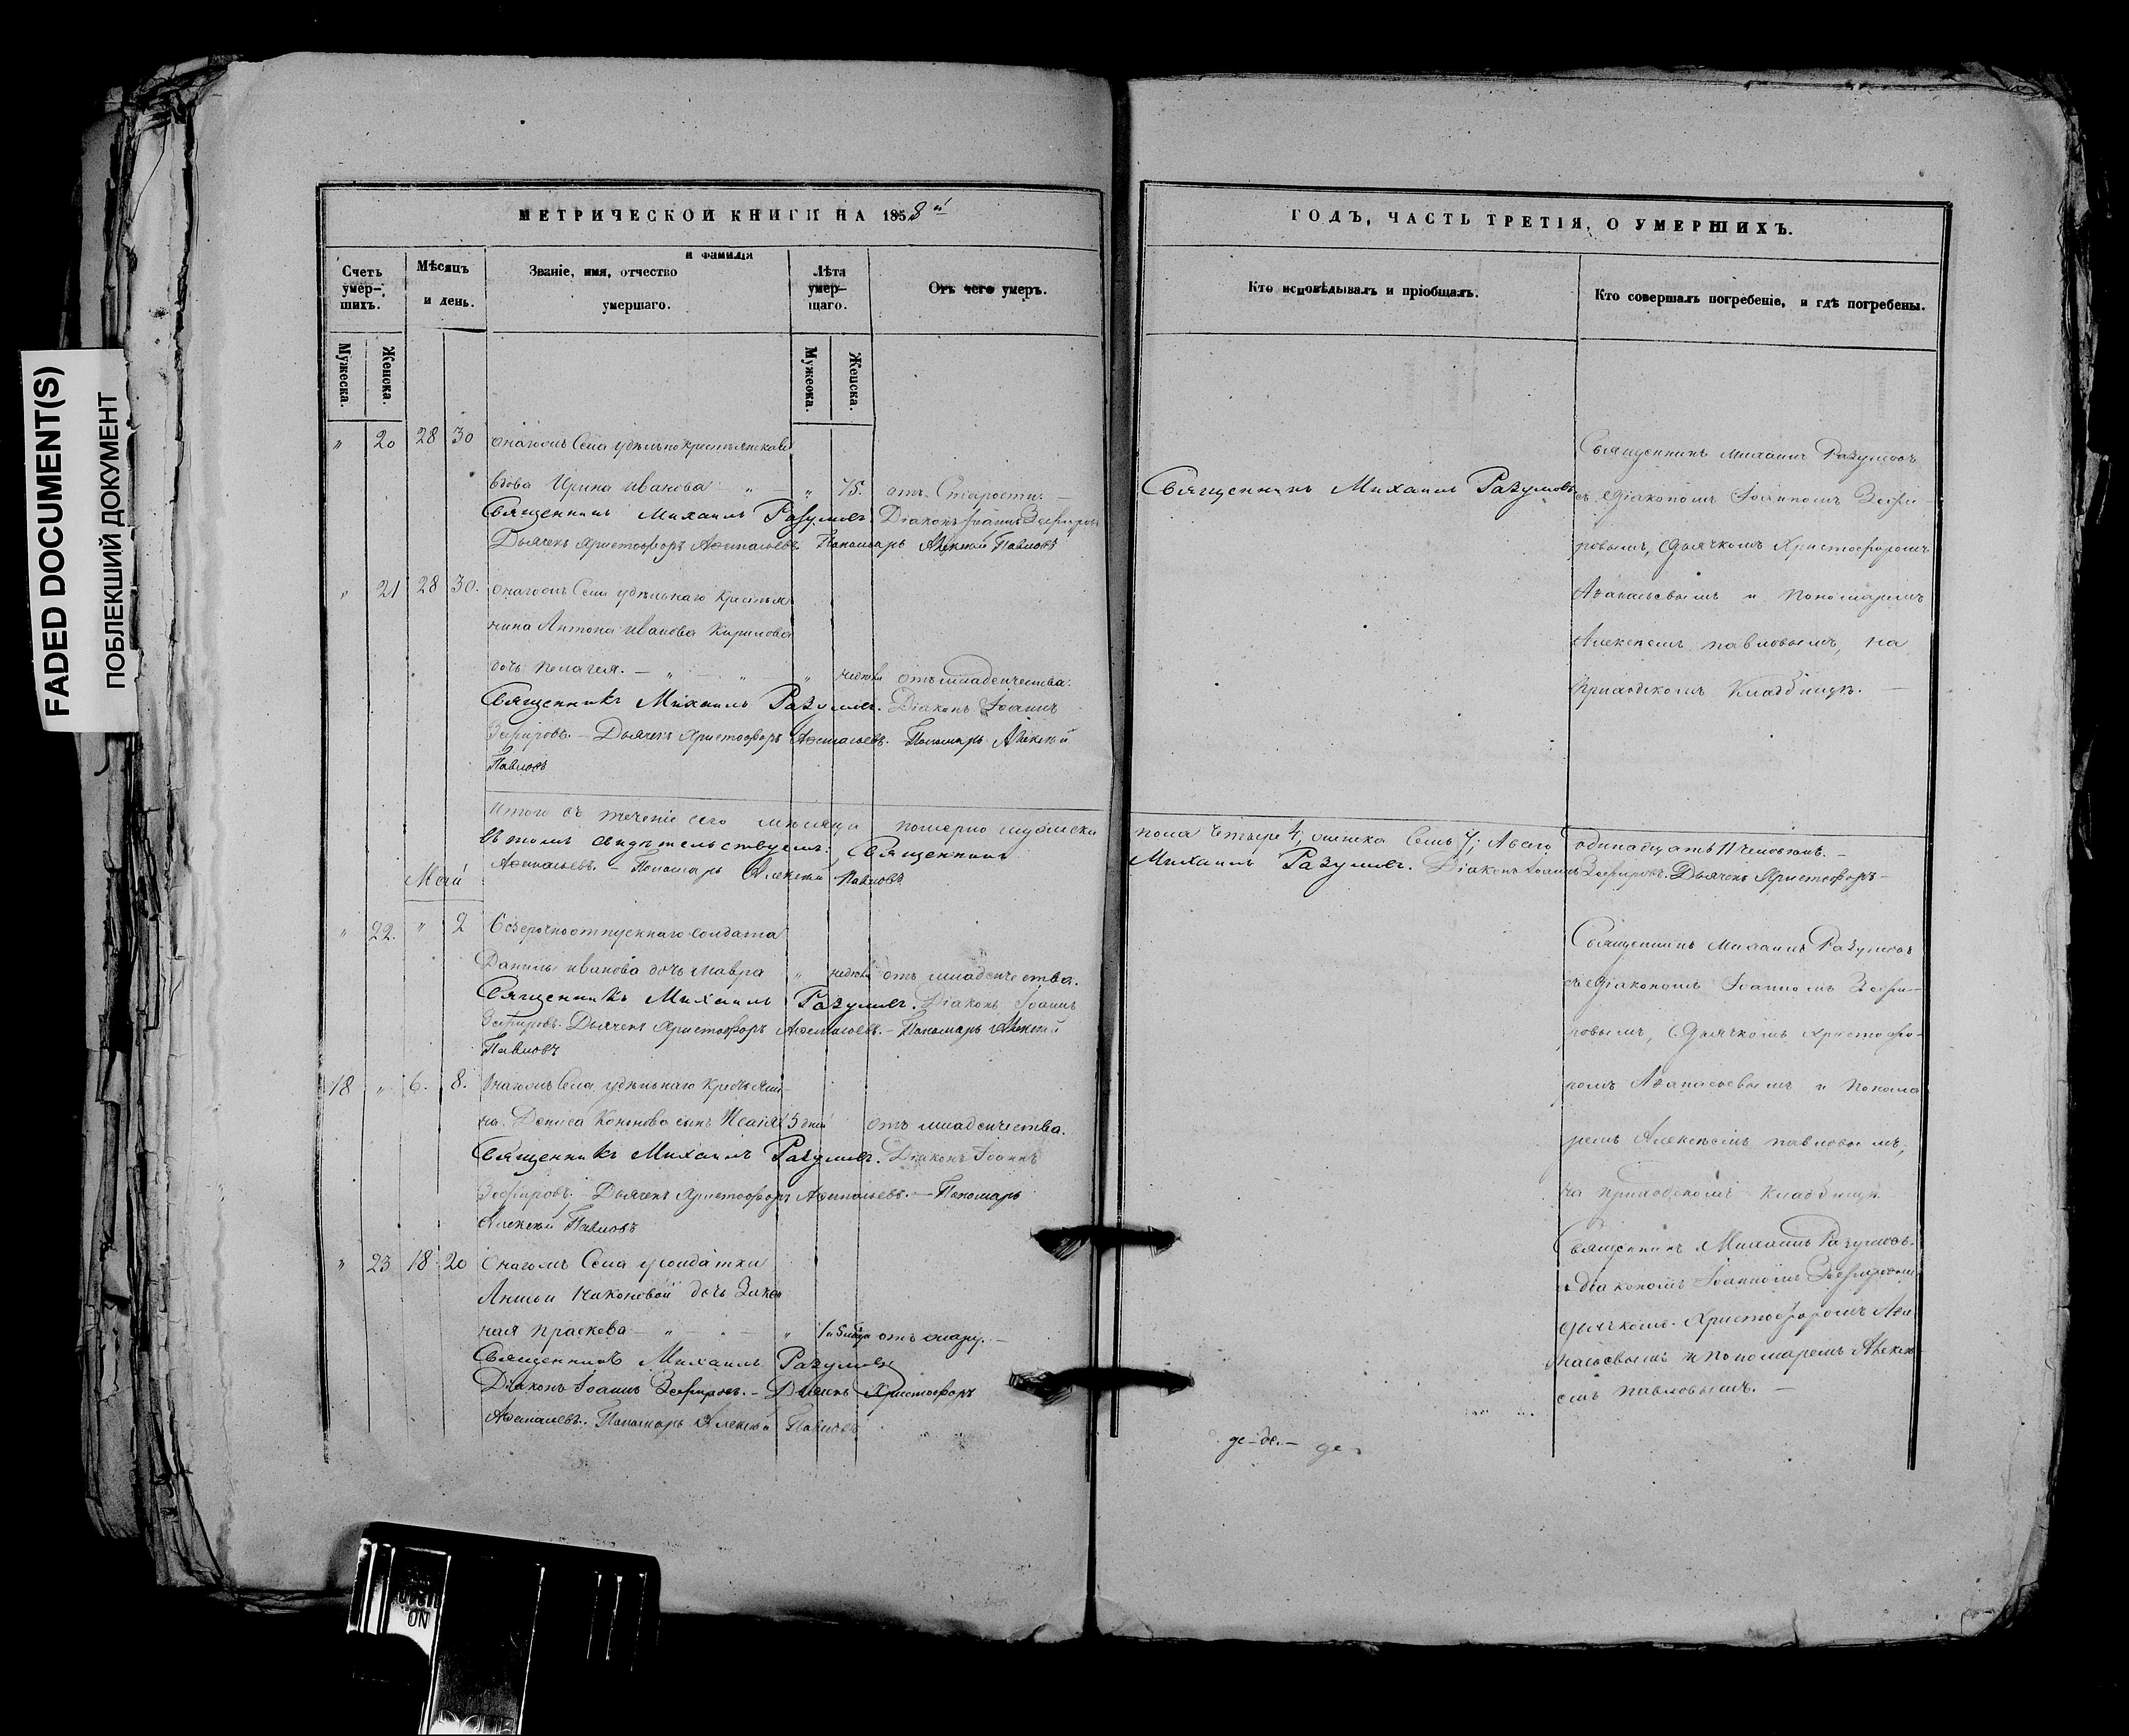 FADED DOCUMENT(S)
ПОБЛЕКШИЙ ДОКУМЕНТ
МЕТРИЧЕСКОЙ КНИГИ НА 1858й
Счетъ умер-шихъ.
Мѣсяцъ и день.
Званіе, имя, отчество и фамилія умершаго.
Лѣта умер-шаго.
Отъ чего умеръ.
Мужеска.
Женска.
Мужеска.
Женска.
" 20 28 30
вдова Ирина Иванова " 75. отъ Старости. —
Священникъ Михаилъ Разумовъ. Діаконъ Іоаннъ Зефировъ
Дьячекъ Христофоръ Афанасьевъ Пономарь Алексѣй Павловъ
" 21 28 30. Села удѣльнаго крестья
нина Антона Иванова Кирилова
дочь Пелагея. — " " " отъ младенчества.
Священникъ Михаилъ Разумовъ. Діаконъ Іоаннъ
Зефировъ. — Дьячекъ Христофоръ Афанасьевъ. Пономарь Алексѣй
Павловъ
Итого въ теченіе сего мѣсяца померло мужеска
въ томъ свидѣтельствуемъ: Священникъ
Афанасьевъ. — Пономарь Алексѣй Павловъ
Май
" 22. " 2 безсрочноотпускнаго солдата
Данилы Иванова дочь Мавра " отъ младенчества.
Священникъ Михаилъ Разумовъ. Діаконъ Іоаннъ
Зефировъ. Дьячекъ Христофоръ Афанасьевъ. — Пономарь Алексѣй
Павловъ
18 " 6. 8. Села удѣльнаго
на Дениса сынъ Исаія 5 дней отъ младенчества.
Священникъ Михаилъ Разумовъ. Діаконъ Іоаннъ
Зефировъ. — Дьячекъ Христофоръ Афанасьевъ. — Пономарь
Алексѣй Павловъ
" 23 18 20 Села солдатки
Никоновой дочь
ная Праскева — " — " отъ жару. —
Священникъ Михаилъ Разумовъ
Діаконъ Іоаннъ Зефировъ. — Дьячекъ Христофоръ
Афанасьевъ. Пономарь Алексѣй Павловъ
ГОДЪ, ЧАСТЬ ТРЕТІЯ, О УМЕРШИХЪ.
Кто исповѣдывалъ и пріобщалъ.
Кто совершалъ погребеніе, и гдѣ погребены.
Священникъ Михаилъ Разумовъ
Священникъ Михаилъ Разумовъ
съ Діакономъ Іоанномъ Зефи
ровымъ, Сдьячкомъ Христофоромъ
Афанасьевымъ и Пономаремъ
Алексѣемъ Павловымъ, на
приходскомъ Кладбищѣ. —
пола Четыре 4, женска Семь 7; Авсего одинадцать 11 человѣкъ. —
Михаилъ Разумовъ. Діаконъ Іоаннъ Зефировъ. Дьячекъ Христофоръ —
Священникъ Михаилъ Разумовъ
съ Діакономъ Іоанномъ Зефи-
ровымъ, Сдьячкомъ Христофо-
ромъ Афанасьевымъ и Понома
ремъ Алексѣемъ Павловымъ,
на приходскомъ Кладбищѣ
Священникъ Михаилъ Разумовъ.
съ Діакономъ Іоанномъ Зефировым
дьячкомъ Христофоромъ Афа
насьевымъ и Пономаремъ Алексѣ
емъ Павловымъ. —